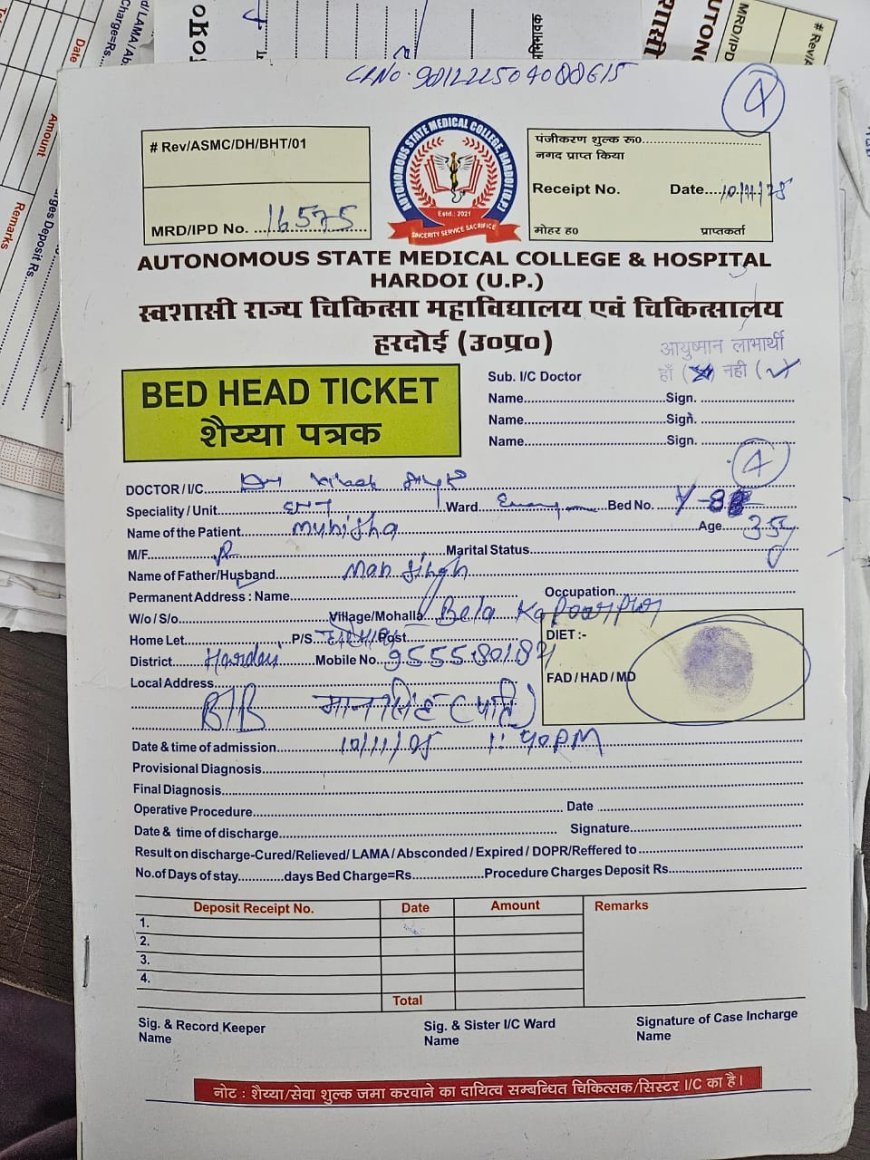 CR No. 981222504088615
4
# Rev/ASMC/DH/BHT/01
MRD/IPD No. 16575
AUTONOMOUS STATE MEDICAL COLLEGE, HARDOI (U.P.)
Estd.: 2021
SINCERITY SERVICE SACRIFICE
पंजीकरण शुल्क रू0
नगद प्राप्त किया
Receipt No. Date....10/11/25
मोहर ह0 प्राप्तकर्ता
AUTONOMOUS STATE MEDICAL COLLEGE & HOSPITAL
HARDOI (U.P.)
स्वशासी राज्य चिकित्सा महाविद्यालय एवं चिकित्सालय
हरदोई (उ०प्र०)
आयुष्मान लाभार्थी
हाँ ( ) नही ( )
BED HEAD TICKET
शैय्या पत्रक
Sub. I/C Doctor
Name Sign.
Name Sign.
Name Sign.
4
DOCTOR / I/C. Dr
Speciality / Unit ENT Ward Bed No.
Name of the Patient Munisha Age 35y
M/F. Marital Status
Name of Father/Husband Man Singh
Permanent Address : Name Occupation
W/o / S/o Village/Mohalla Bela
Home Let. P/S. Post
District Hardoi Mobile No.
Local Address
B/B मानसिंह (पति)
DIET :-
FAD / HAD / MD
Date & time of admission 10/11/25 1:40PM
Provisional Diagnosis
Final Diagnosis
Operative Procedure Date
Date & time of discharge Signature
Result on discharge-Cured/Relieved/ LAMA / Absconded / Expired / DOPR/Reffered to
No.of Days of stay days Bed Charge=Rs Procedure Charges Deposit Rs
Deposit Receipt No. Date Amount Remarks
1.
2.
3.
4.
Total
Sig. & Record Keeper Sig. & Sister I/C Ward Signature of Case Incharge
Name Name Name
नोट : शैय्या/सेवा शुल्क जमा करवाने का दायित्व सम्बन्धित चिकित्सक/सिस्टर I/C का है।